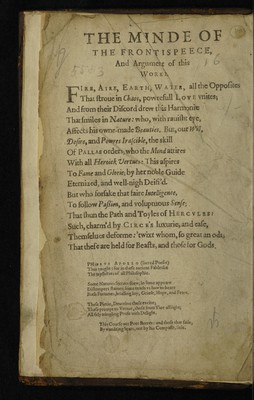 THE MINDE OF
THE FRONTISPEECE,
And Argument of this
WORKE.
FIRE, AIRE, EARTH, WATER, all the Opposites
That stroue in Chaos, powrefull LOVE vnites;
And from their Discord drew this Harmonie
That smiles in Nature: who, with rauisht eye,
Affects his owne-made Beauties. But, our Will,
Desire, and Powres Irascible, the skill
Of PALLAS orders; who the Mind attires
With all Heroick Vertues: This aspires
To Fame and Glorie; by her noble Guide
Eternized, and well-nigh Deifi'd.
But who forsake that faire Intelligence,
To follow Passion, and voluptuous Sense;
That shun the Path and Toyles of HERCVLES:
Such, charm'd by CIRCE's luxurie, and ease,
Themselues deforme: 'twixt whom, so great an ods;
That these are held for Beasts, and those for Gods.
PHOEBVS APOLLO (sacred Poesie)
Thus taught: for in these ancient Fables lie
The mysteries of all Philosophie.
Some Natures secrets shew; in some appeare
Distempers staines; some teach vs how to beare
Both Fortunes, bridling Joy, Griefe, Hope, and Feare.
These Pietie, Deuotion those excite;
These prompt to Vertue, those from Vice affright;
All fitly mingling Profit with Delight.
This Course our Poet steer'd: and those that faile,
By wandring stars, not by his Compasse, saile.